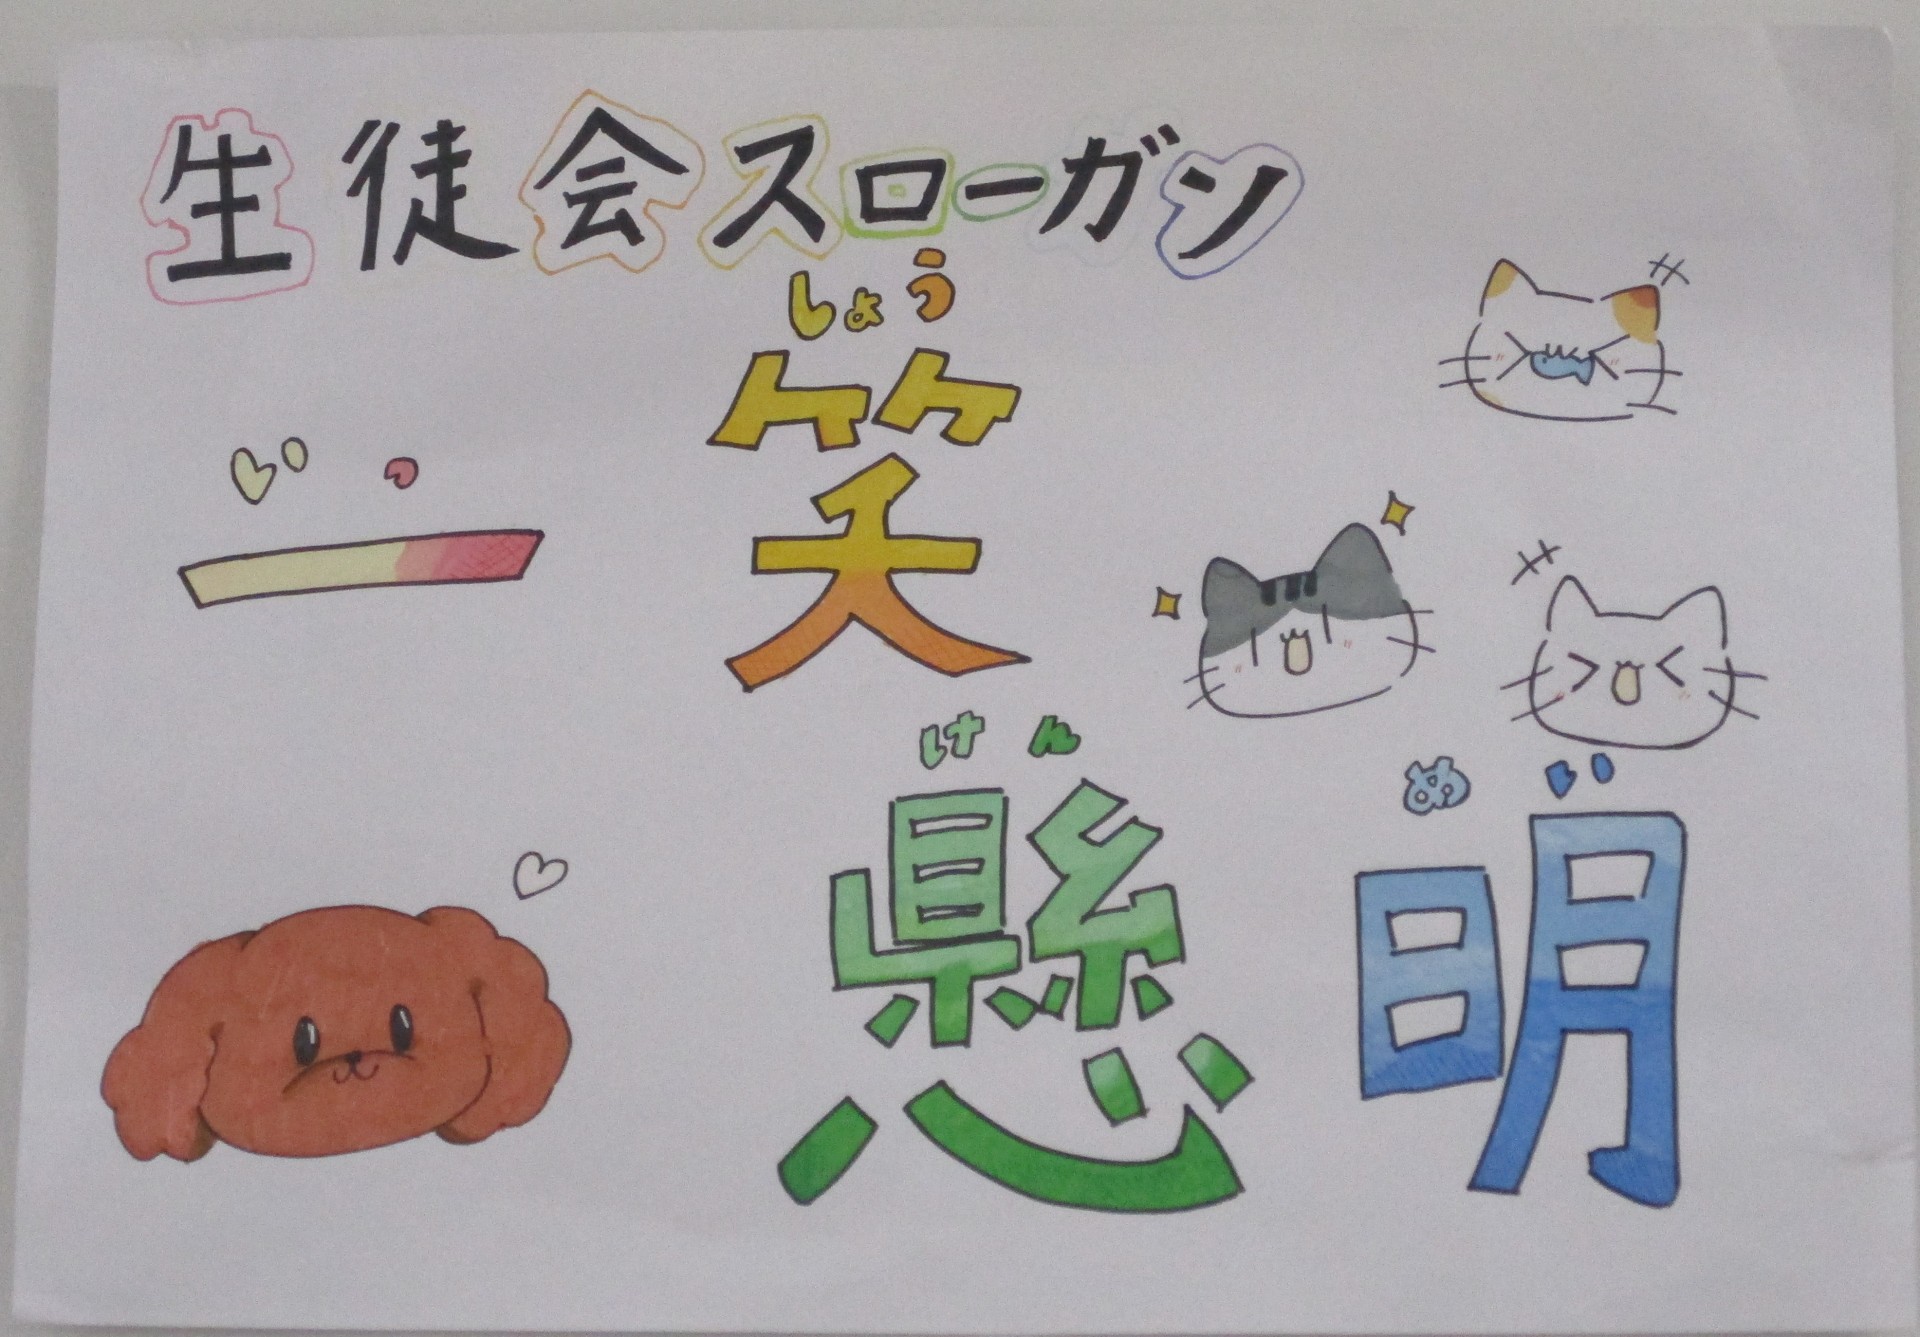 生徒会スローガン
いっ しょう
一 笑
けん めい
懸 明